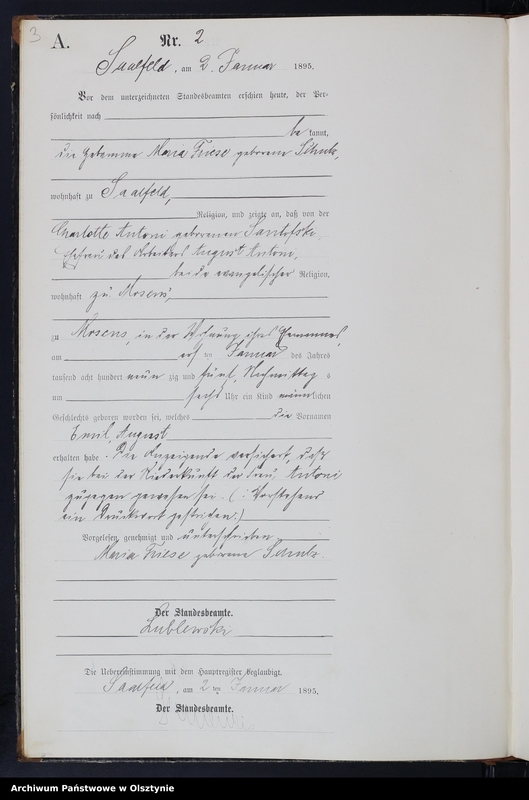 3
A.
Nr. 2
Saalfeld, am 2. Januar 1895.
Vor dem unterzeichneten Standesbeamten erschien heute, der Per-
sönlichkeit nach
be kannt,
die Hebamme Maria Friese geborene Schulz,
wohnhaft zu Saalfeld,
Religion, und zeigte an, daß von der
Charlotte Antoni geborenen
Ehefrau des Arbeiters August Antoni,
beide evangelischer Religion,
wohnhaft zu Mosens,
zu Mosens, in der Wohnung ihres Ehemannes,
am ersten Januar des Jahres
tausend acht hundert neun zig und fünf, Nachmittag s
um sechs Uhr ein Kind männlichen
Geschlechts geboren worden sei, welches die Vornamen
Emil, August
erhalten habe. Die Anzeigende versichert, daß
sie bei der Niederkunft der Frau Antoni
zugegen gewesen sei. (: Vorstehend
ein Druckwort gestrichen.)
Vorgelesen, genehmigt und unterschrieben
Maria Friese geborene Schulz
Der Standesbeamte.
Lublewski
Die Uebereinstimmung mit dem Hauptregister beglaubigt.
Saalfeld, am 2 ten Januar 1895.
Der Standesbeamte.
Archiwum Państwowe w Olsztynie